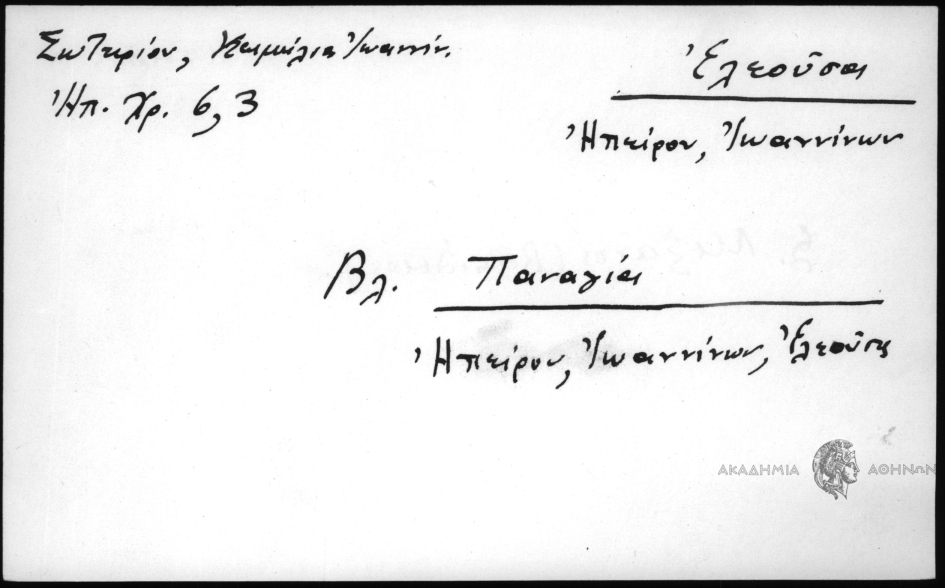 Σωτηρίου, Κειμήλια Ἰωαννίν.
Ἠπ. Χρ. 6, 3
Ἐλεοῦσα
Ἠπείρου, Ἰωαννίνων
Βλ. Παναγία
Ἠπείρου, Ἰωαννίνων, Ἐλεοῦσα
ΑΚΑΔΗΜΙΑ ΑΘΗΝΩΝ